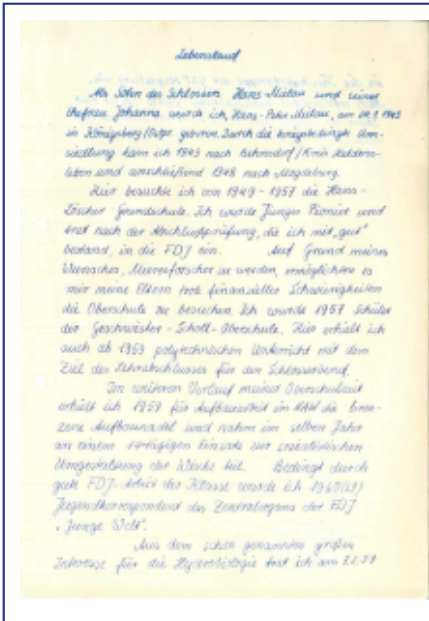 Lebenslauf
Als Sohn des Schlossers Hans Mielau und seiner
Ehefrau Johanna wurde ich, Hans-Peter Mielau, am 1943
in Königsberg/Ostpr. geboren. Durch die kriegsbedingte Um-
siedlung kam ich 1943 nach Behnsdorf/Kreis Haldens-
leben und anschließend 1948 nach Magdeburg.
Hier besuchte ich von 1949 - 1957 die Hans-
Grundschule. Ich wurde Junger Pionier und
trat nach der Abschlussprüfung, die ich mit „gut"
bestand, in die FDJ ein. Auf Grund meines
Wunsches, Meeresforscher zu werden, ermöglichten es
mir meine Eltern trotz finanzieller Schwierigkeiten
die Oberschule zu besuchen. Ich wurde 1957 Schüler
der Geschwister-Scholl-Oberschule. Hier erhielt ich
auch ab 1959 polytechnischen Unterricht mit dem
Ziel des Lehrabschlusses für den Schlosserberuf.
Im weiteren Verlauf meiner Oberschulzeit
erhielt ich 1959 für Aufbauarbeit im NAW die bron-
zene Aufbaunadel und nahm im selben Jahr
an einem 14-tägigen Einsatz zur sozialistischen
Umgestaltung der Wische teil. Bedingt durch
gute FDJ-Arbeit der Klasse wurde ich 1960
Jugendkorrespondent des Zentralorgans der FDJ
„Junge Welt".
Aus dem schon genannten großen
Interesse für die Hydrobiologie trat ich am 59